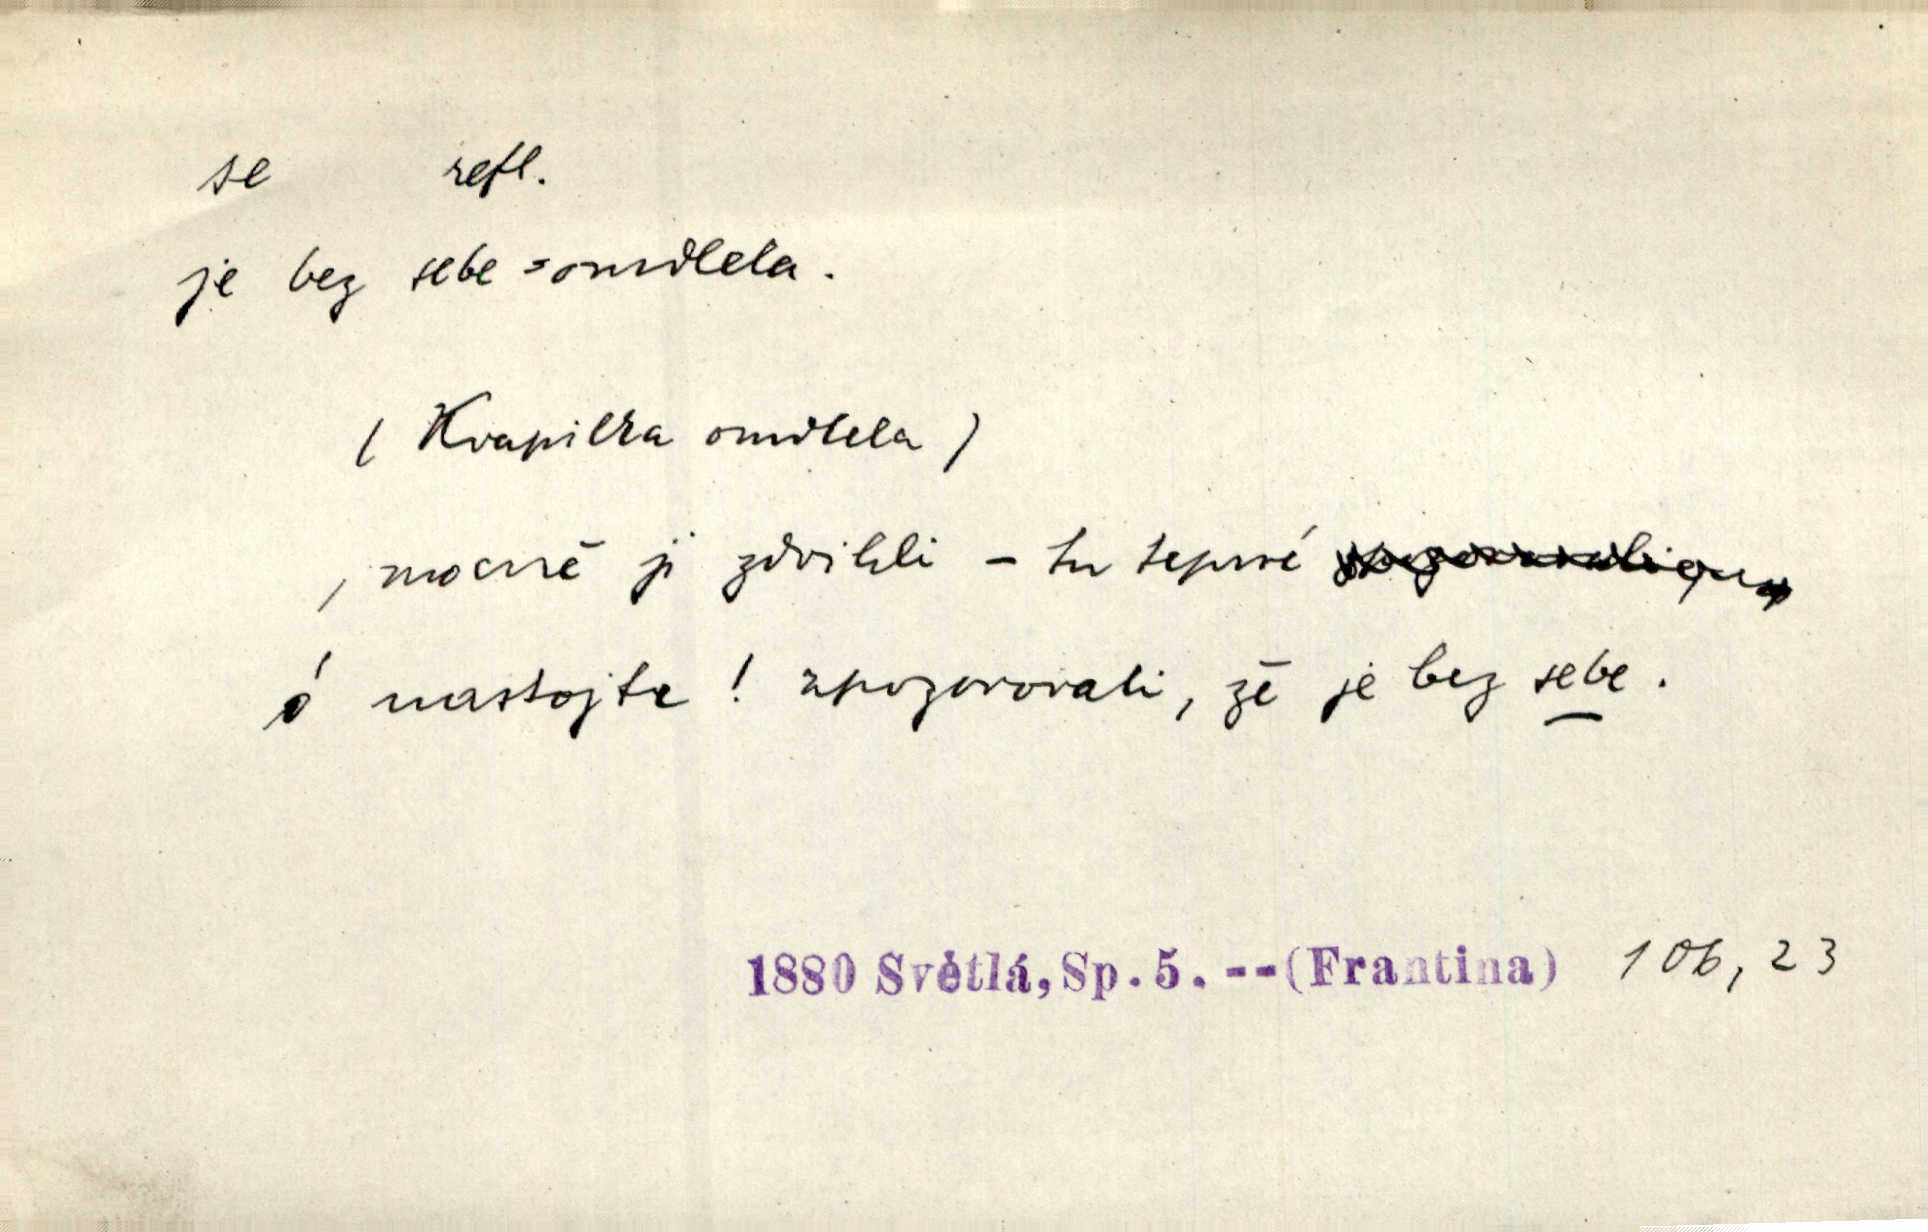 se refl.
je bez sebe = omdlela.
( Kvapilka omdlela )
, mocně ji zdvihli – tu teprvé
ó nastojte ! zpozorovali, že je bez sebe.
1880 Světlá, Sp. 5. -- (Frantina) 106, 23